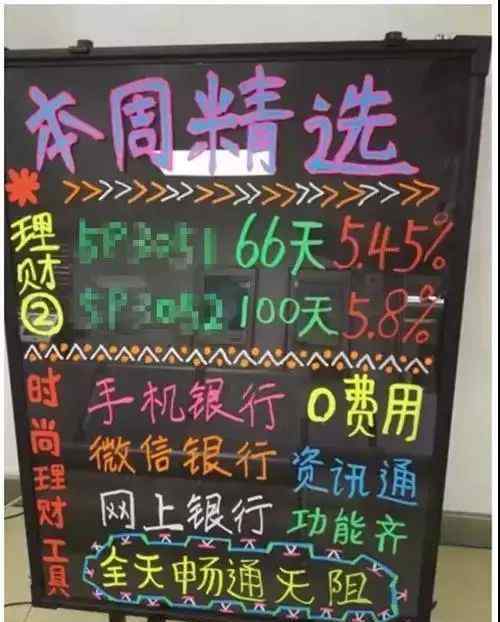 本周精选
理财②
5P3051 66天 5.45%
5P3052 100天 5.8%
时尚理财工具
手机银行 0费用
微信银行 资讯通
网上银行 功能齐
全天畅通无阻